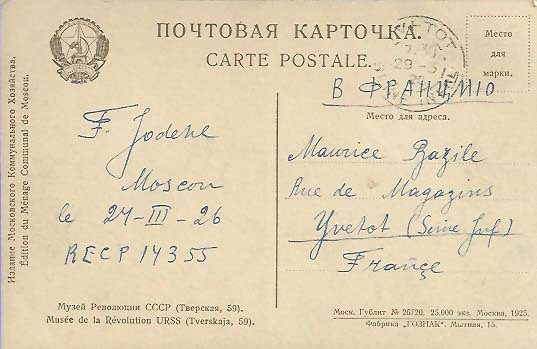 ПОЧТОВАЯ КАРТОЧКА.
CARTE POSTALE.
Место
для
марки.
YVETOT
В ФРАНЦИЮ
Место для адреса.
F. Jodene
Moscou
le 24-III-26
RECP 14355
Maurice Bazile
Rue de Magazins
Yvetot (Seine Inf)
France
Издание Московского Коммунального Хозяйства.
Édition du Ménage Communal de Moscou.
Музей Революции СССР (Тверская, 59).
Musée de la Révolution URSS (Tverskaja, 59).
Моск. Гублит № 26720. 25.000 экз. Москва, 1925.
Фабрика „ГОЗНАК". Мытная, 15.